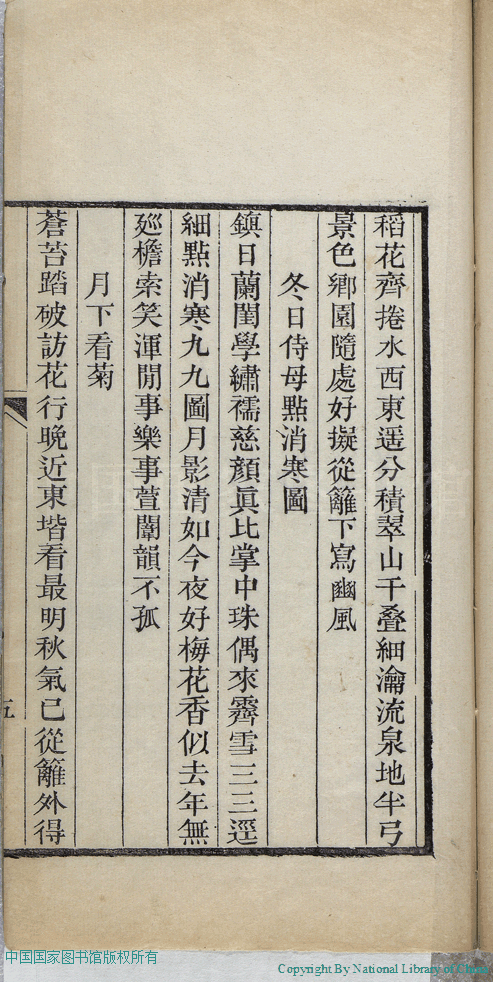 稻花齊捲水西東遥分積翠山千叠細瀹流泉地半弓
景色鄉園隨處好擬從籬下寫豳風
冬日侍母點消寒圖
鎮日蘭閨學繡襦慈顏眞比掌中珠偶來霽雪三三逕
細點消寒九九圖月影清如今夜好梅花香似去年無
廵檐索笑渾閒事樂事萱闈韻不孤
月下看菊
蒼苔踏破訪花行晚近東堦看最明秋氣已從籬外得
五
中国国家图书馆版权所有
Copyright By National Library of China